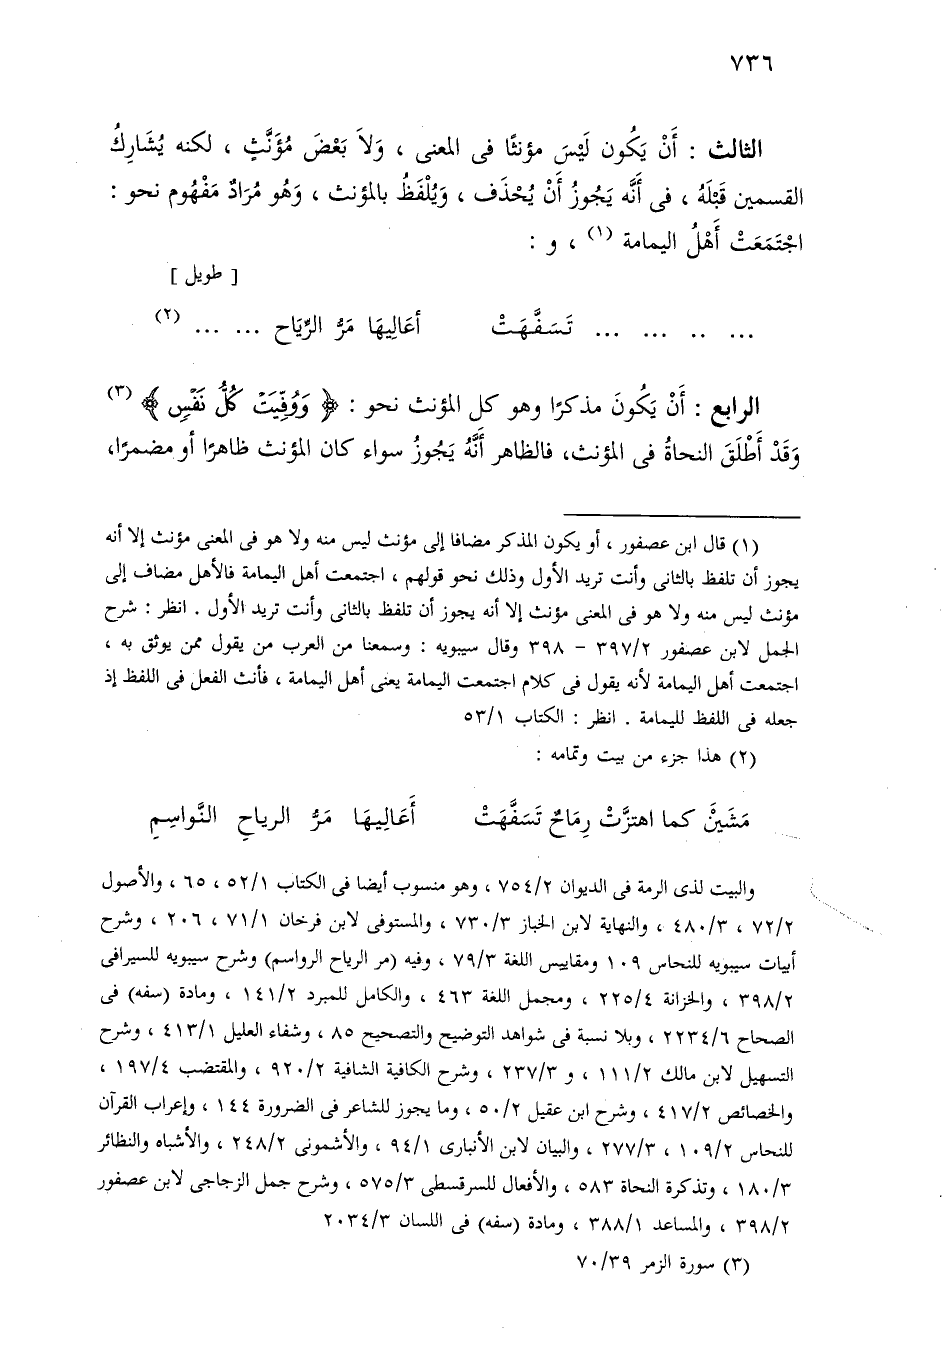 ٧٣٦
الثالث : أَنْ يَكُون لَيْسَ مؤنثًا فى المعنى ، وَلاَ بَعْضَ مُؤَنَّثٍ ، لكنه يُشَارِكُ
القسمين قَبْلَهُ ، فى أَنَّه يَجُوزُ أَنْ يُحْذَف ، وَيُلْفَظُ بالمؤنث ، وَهُو مُرَادٌ مَفْهُوم نحو :
اجْتَمَعَتْ أَهْلُ اليمامة (١) ، و :
[ طويل ]
... .. ... ... تَسَفَّهَتْ أعَالِيهَا مَرُّ الرِّيَاح ... ... (٢)
الرابع : أَنْ يَكُونَ مذكرًا وهو كل المؤنث نحو : ﴿ وَوُفِّيَتْ كُلُّ نَفْسٍ ﴾ (٣)
وَقَدْ أَطْلَقَ النحاةُ فى المؤنث، فالظاهر أَنَّهُ يَجُوزُ سواء كان المؤنث ظاهرًا أو مضمرًا،
(١) قال ابن عصفور ، أو يكون المذكر مضافا إلى مؤنث ليس منه ولا هو فى المعنى مؤنث إلا أنه
يجوز أن تلفظ بالثانى وأنت تريد الأول وذلك نحو قولهم ، اجتمعت أهل اليمامة فالأهل مضاف إلى
مؤنث ليس منه ولا هو فى المعنى مؤنث إلا أنه يجوز أن تلفظ بالثانى وأنت تريد الأول . انظر : شرح
الجمل لابن عصفور ٣٩٧/٢ - ٣٩٨ وقال سيبويه : وسمعنا من العرب من يقول ممن يوثق به ،
اجتمعت أهل اليمامة لأنه يقول فى كلام اجتمعت اليمامة يعنى أهل اليمامة ، فأنث الفعل فى اللفظ إذ
جعله فى اللفظ لليمامة . انظر : الكتاب ٥٣/١
(٢) هذا جزء من بيت وتمامه :
مَشَيْنَ كما اهتزَّتْ رِمَاحٌ تَسَفَّهَتْ أَعَالِيهَا مَرُّ الرياحِ النَّواسِمِ
والبيت لذى الرمة فى الديوان ٧٥٤/٢ ، وهو منسوب أيضا فى الكتاب ٥٢/١ ، ٦٥ ، والأصول
٧٢/٢ ، ٤٨٠/٣ ، والنهاية لابن الخباز ٧٣٠/٣ ، والمستوفى لابن فرخان ٧١/١ ، ٢٠٦ ، وشرح
أبيات سيبويه للنحاس ١٠٩ ومقاييس اللغة ٧٩/٣ ، وفيه (مر الرياح الرواسم) وشرح سيبويه للسيرافى
٣٩٨/٢ ، والخزانة ٢٢٥/٤ ، ومجمل اللغة ٤٦٣ ، والكامل للمبرد ١٤١/٢ ، ومادة (سفه) فى
الصحاح ٢٢٣٤/٦ ، وبلا نسبة فى شواهد التوضيح والتصحيح ٨٥ ، وشفاء العليل ٤١٣/١ ، وشرح
التسهيل لابن مالك ١١١/٢ ، و ٢٣٧/٣ ، وشرح الكافية الشافية ٩٢٠/٢ ، والمقتضب ١٩٧/٤ ،
والخصائص ٤١٧/٢ ، وشرح ابن عقيل ٥٠/٢ ، وما يجوز للشاعر فى الضرورة ١٤٤ ، وإعراب القرآن
للنحاس ١٠٩/٢ ، ٢٧٧/٣ ، والبيان لابن الأنبارى ٩٤/١ ، والأشمونى ٢٤٨/٢ ، والأشباه والنظائر
١٨٠/٣ ، وتذكرة النحاة ٥٨٣ ، والأفعال للسرقسطى ٥٧٥/٣ ، وشرح جمل الزجاجى لابن عصفور
٣٩٨/٢ ، والمساعد ٣٨٨/١ ، ومادة (سفه) فى اللسان ٢٠٣٤/٣
(٣) سورة الزمر ٧٠/٣٩